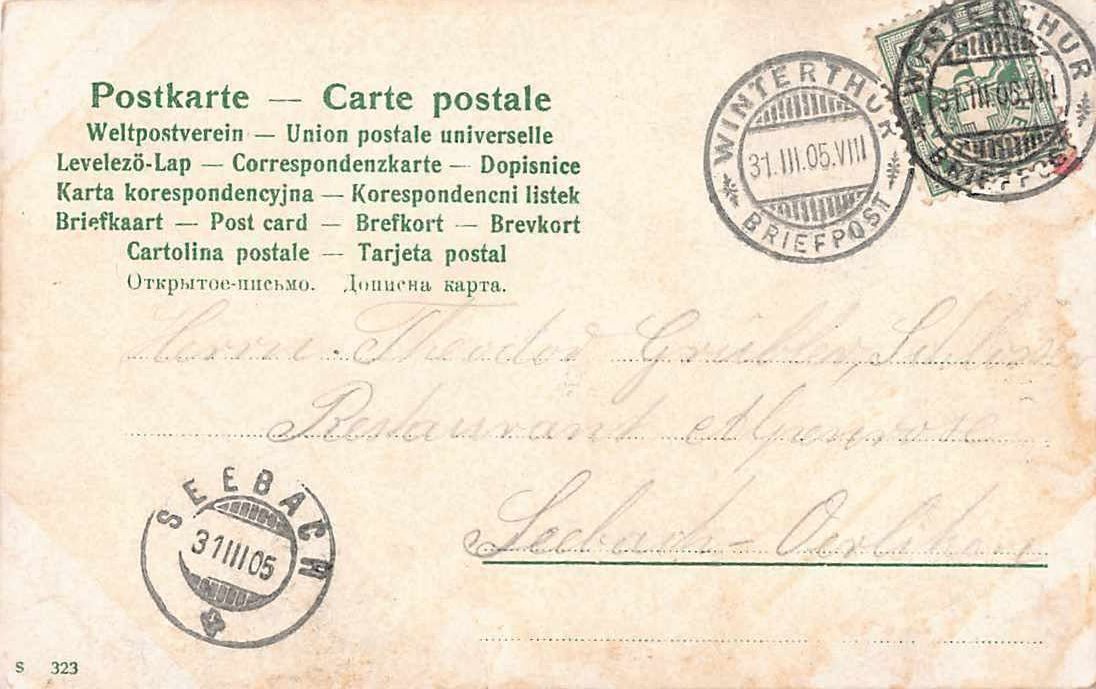 Postkarte — Carte postale
Weltpostverein — Union postale universelle
Levelező-Lap — Correspondenzkarte — Dopisnice
Karta korespondencyjna — Korespondencni listek
Briefkaart — Post card — Brefkort — Brevkort
Cartolina postale — Tarjeta postal
Открытое-письмо. Дописна карта.
WINTERTHUR
31.III.05.VIII
BRIEFPOST
WINTERTHUR
31.III.05.VIII
BRIEFPOST
Herrn Theodor
Restaurant Alpenrose
Seebach - Oerlikon
SEEBACH
31 III 05
S 323